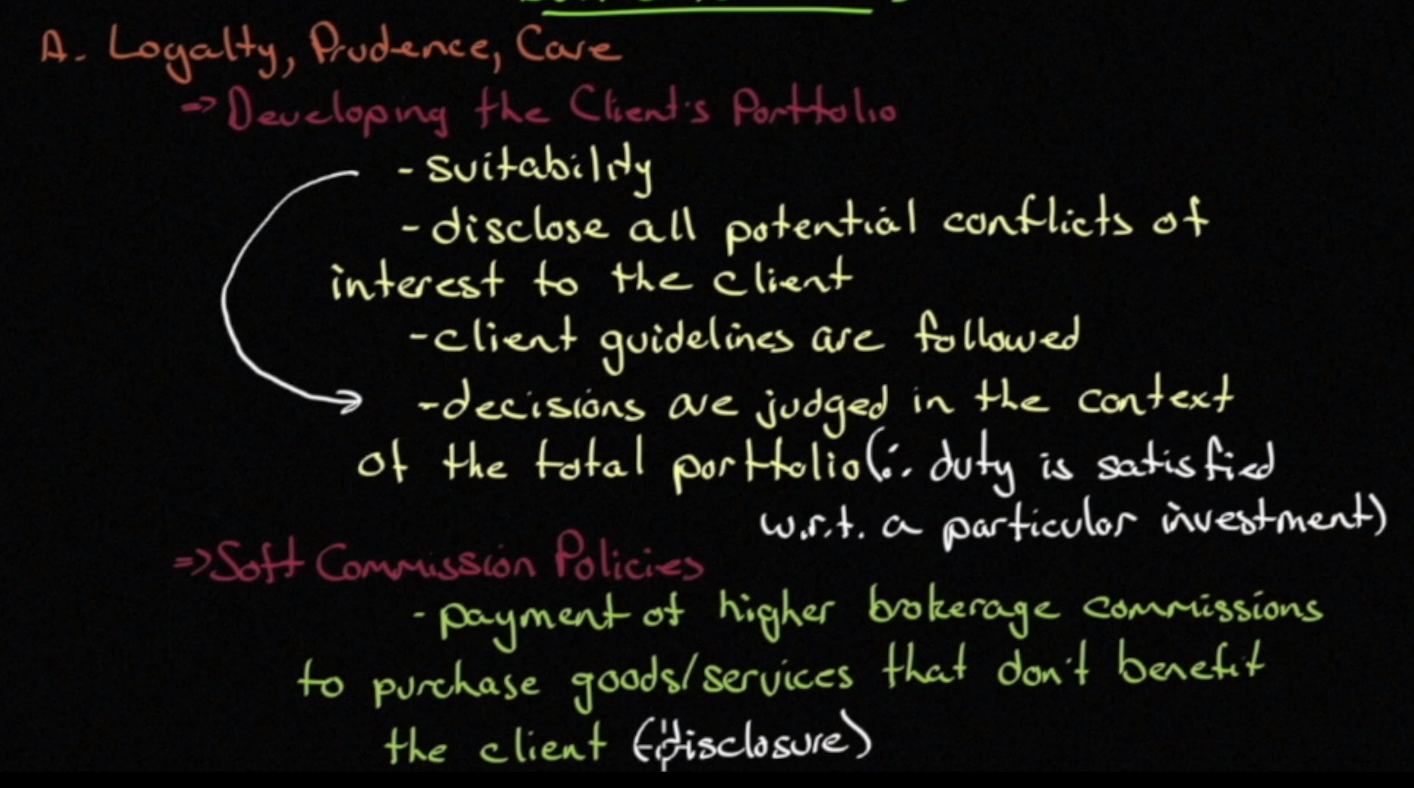 A. Loyalty, Prudence, Care
=> Developing the Client's Portfolio
- suitability
- disclose all potential conflicts of
interest to the client
- client guidelines are followed
- decisions are judged in the context
of the total portfolio (∴ duty is satisfied
w.r.t. a particular investment)
=> Soft Commission Policies
- payment of higher brokerage commissions
to purchase goods/services that don't benefit
the client (disclosure)